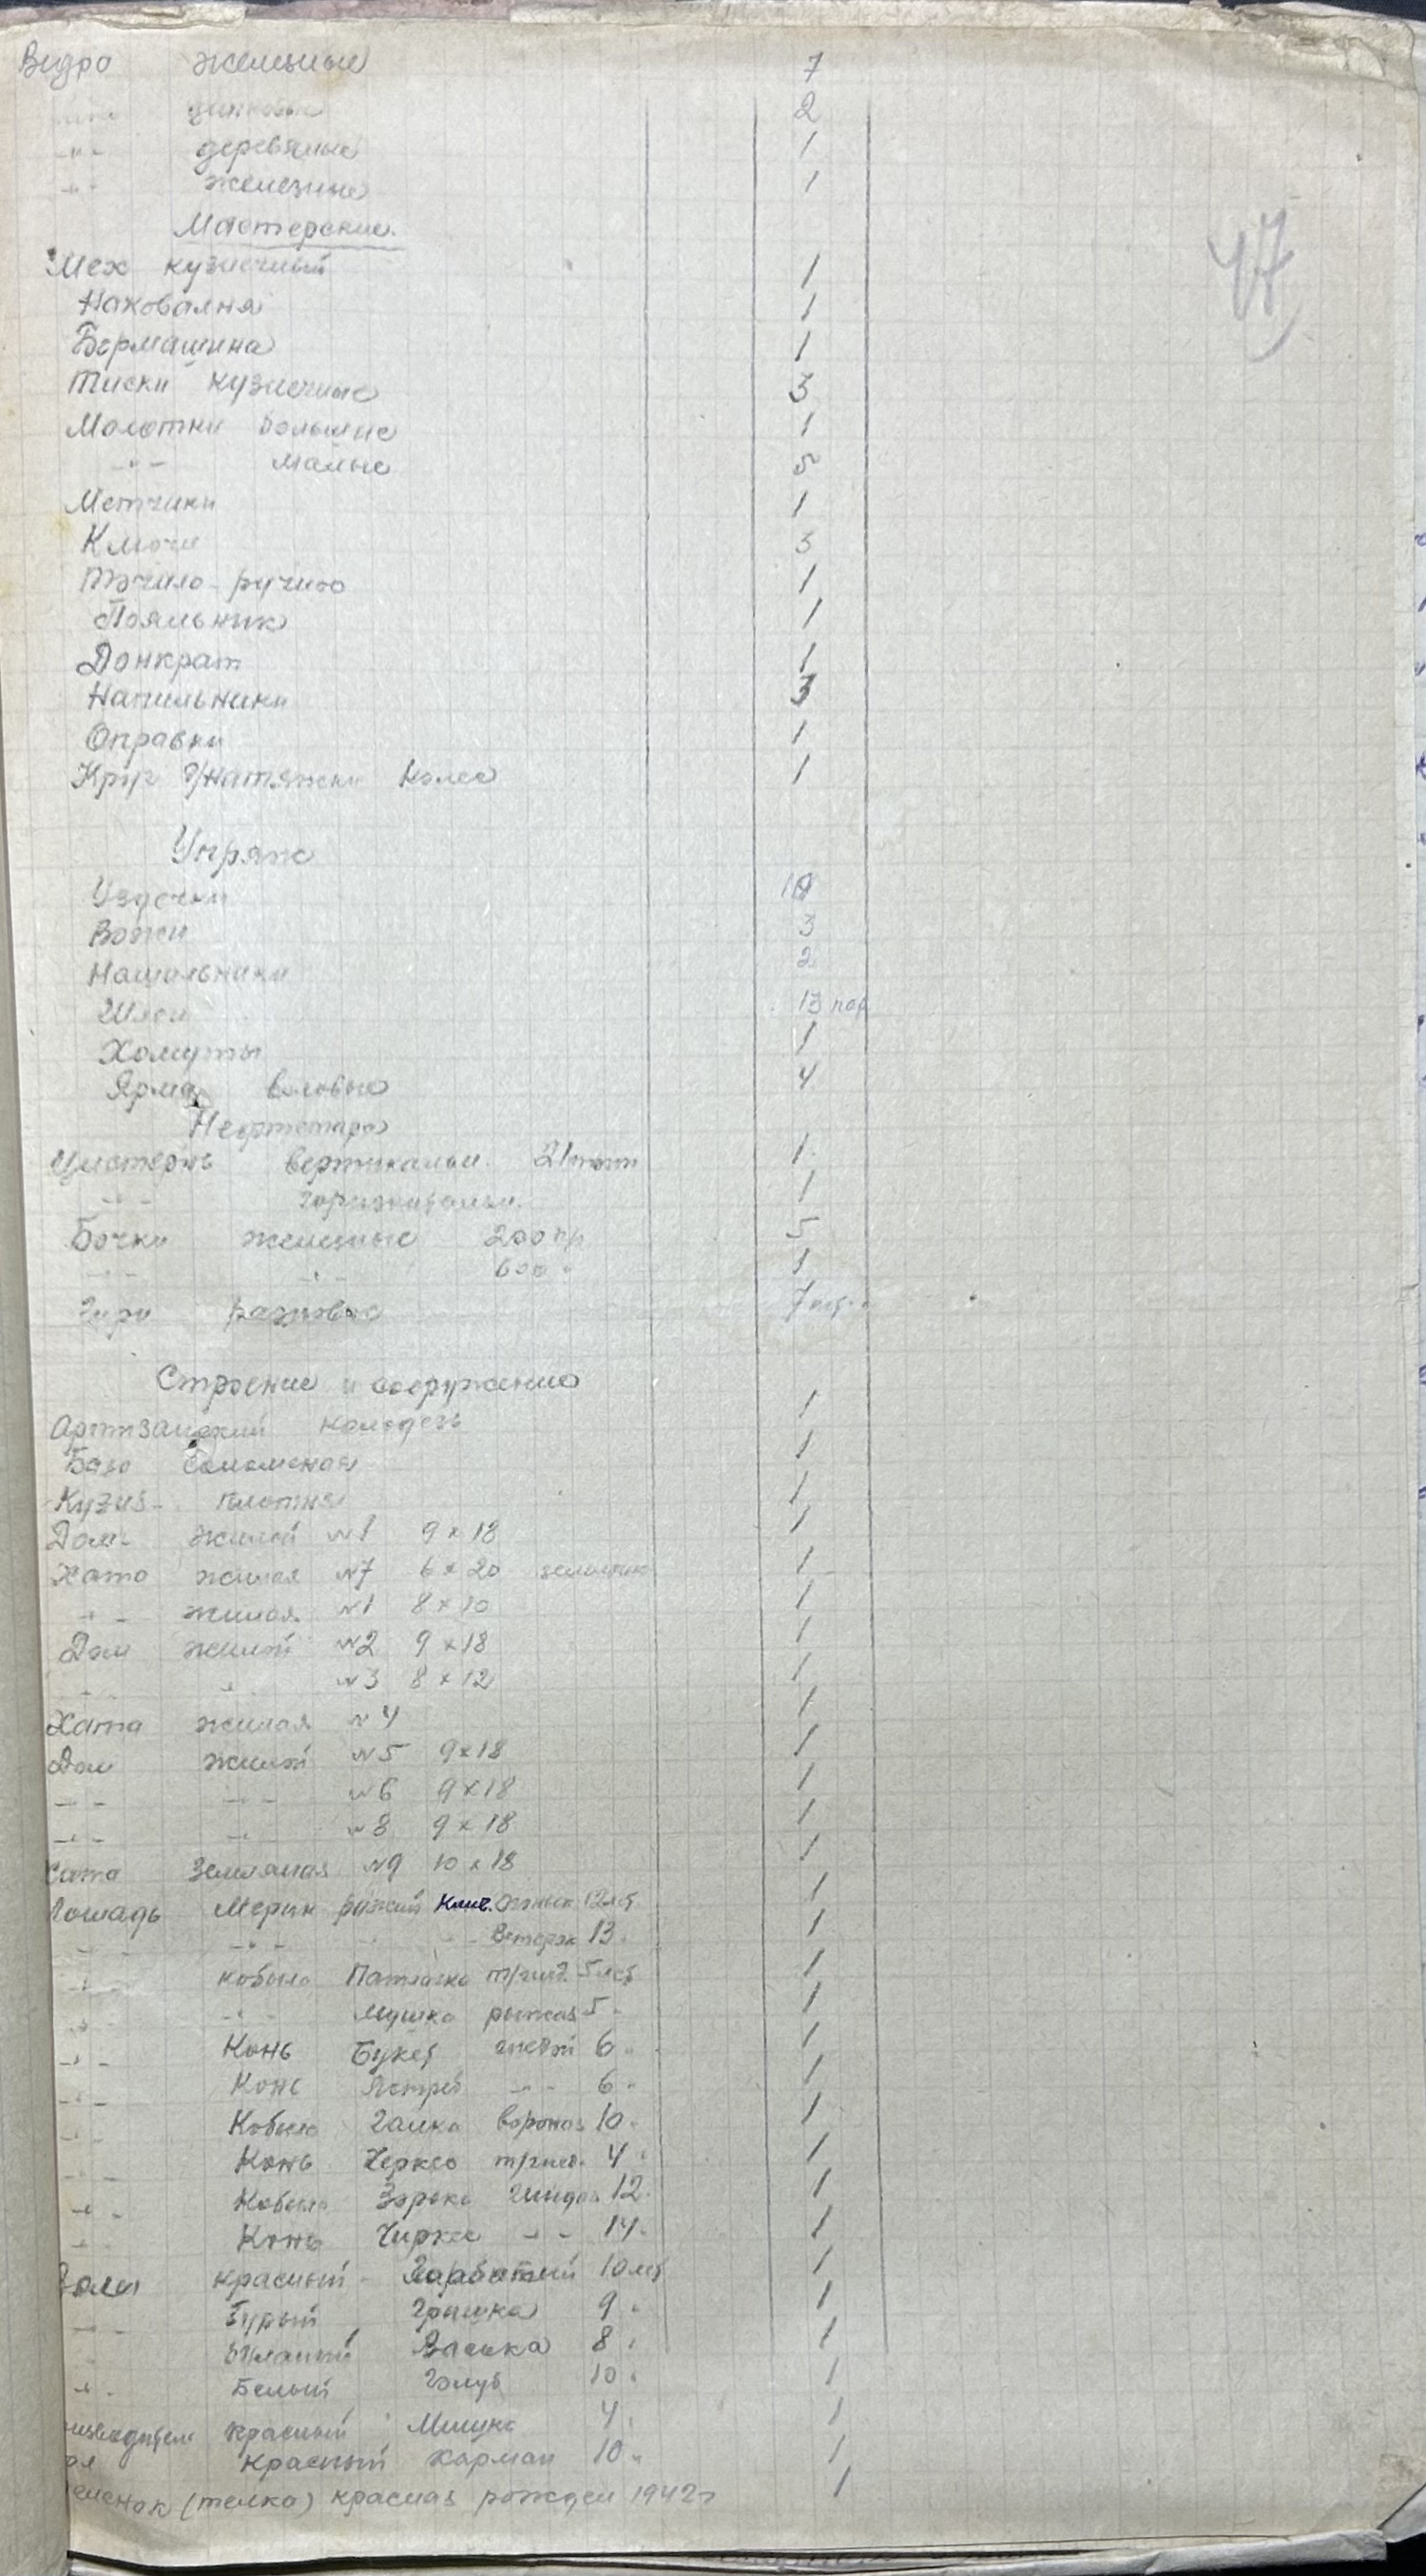 Ведро железные 7
цинковые 2
-"- деревяные 1
-"- железные 1
Мастерские.
47
Мех кузнечный 1
Наковалня 1
Бормашина 1
Тиски кузнечные 3
Молотки большие 1
-"- малые 5
Метчики 1
Ключи 3
Точило-ручное 1
Паяльник 1
Донкрат 1
Напильники 3
Оправки 1
д/натяжки колес 1
Упряж
Уздечки
Вожжи 3
Нашильники 2
Шлеи 13 пар
Хомуты 1
Ярма воловые 4
Нефтетара
Цистернь вертикальн. 1
-"- горизонтальн. 1
Бочки железные 200 5
-"- -"- 600 " 1
Гири разновые 7
Строение и сооружение
Артизанский колодезь 1
База соломеная 1
Кузня- плотня 1
Дом- жилой №1 9х18 1
Хата жилая №7 6х20 1
-"- жилая №1 8х10 1
Дом жилой №2 9х18 1
-"- " №3 8х12 1
Хата жилая №4 1
Дом жилой №5 9х18 1
-"- -"- №6 9х18 1
-"- -"- №8 9х18 1
хата земляная №9 10х18 1
Лошадь Мерин рыжий Клич. 12 лет 1
-"- -"- -"- Ветерок 13 " 1
-"- кобыла т/гнед. 5 лет 1
-"- -"- Мушка рыжая 5 " 1
-"- Конь Букет гнедой 6 " 1
-"- Конь Ястреб -"- 6 " 1
-"- Кобыла Галка вороная 10 " 1
-"- Конь Черкес т/гнед. 4 " 1
-"- Кобыла Зорька гнедая 12 " 1
-"- Конь Чиркес -"- 14 " 1
Волы красный - Горбатый 10 лет 1
-"- Бурый Грашка 9 " 1
Васька 8 " 1
-"- Белый Голуб 10 " 1
красный Мишка 4 " 1
красный Карман 10 " 1
(телка) красная рожден 1942г 1